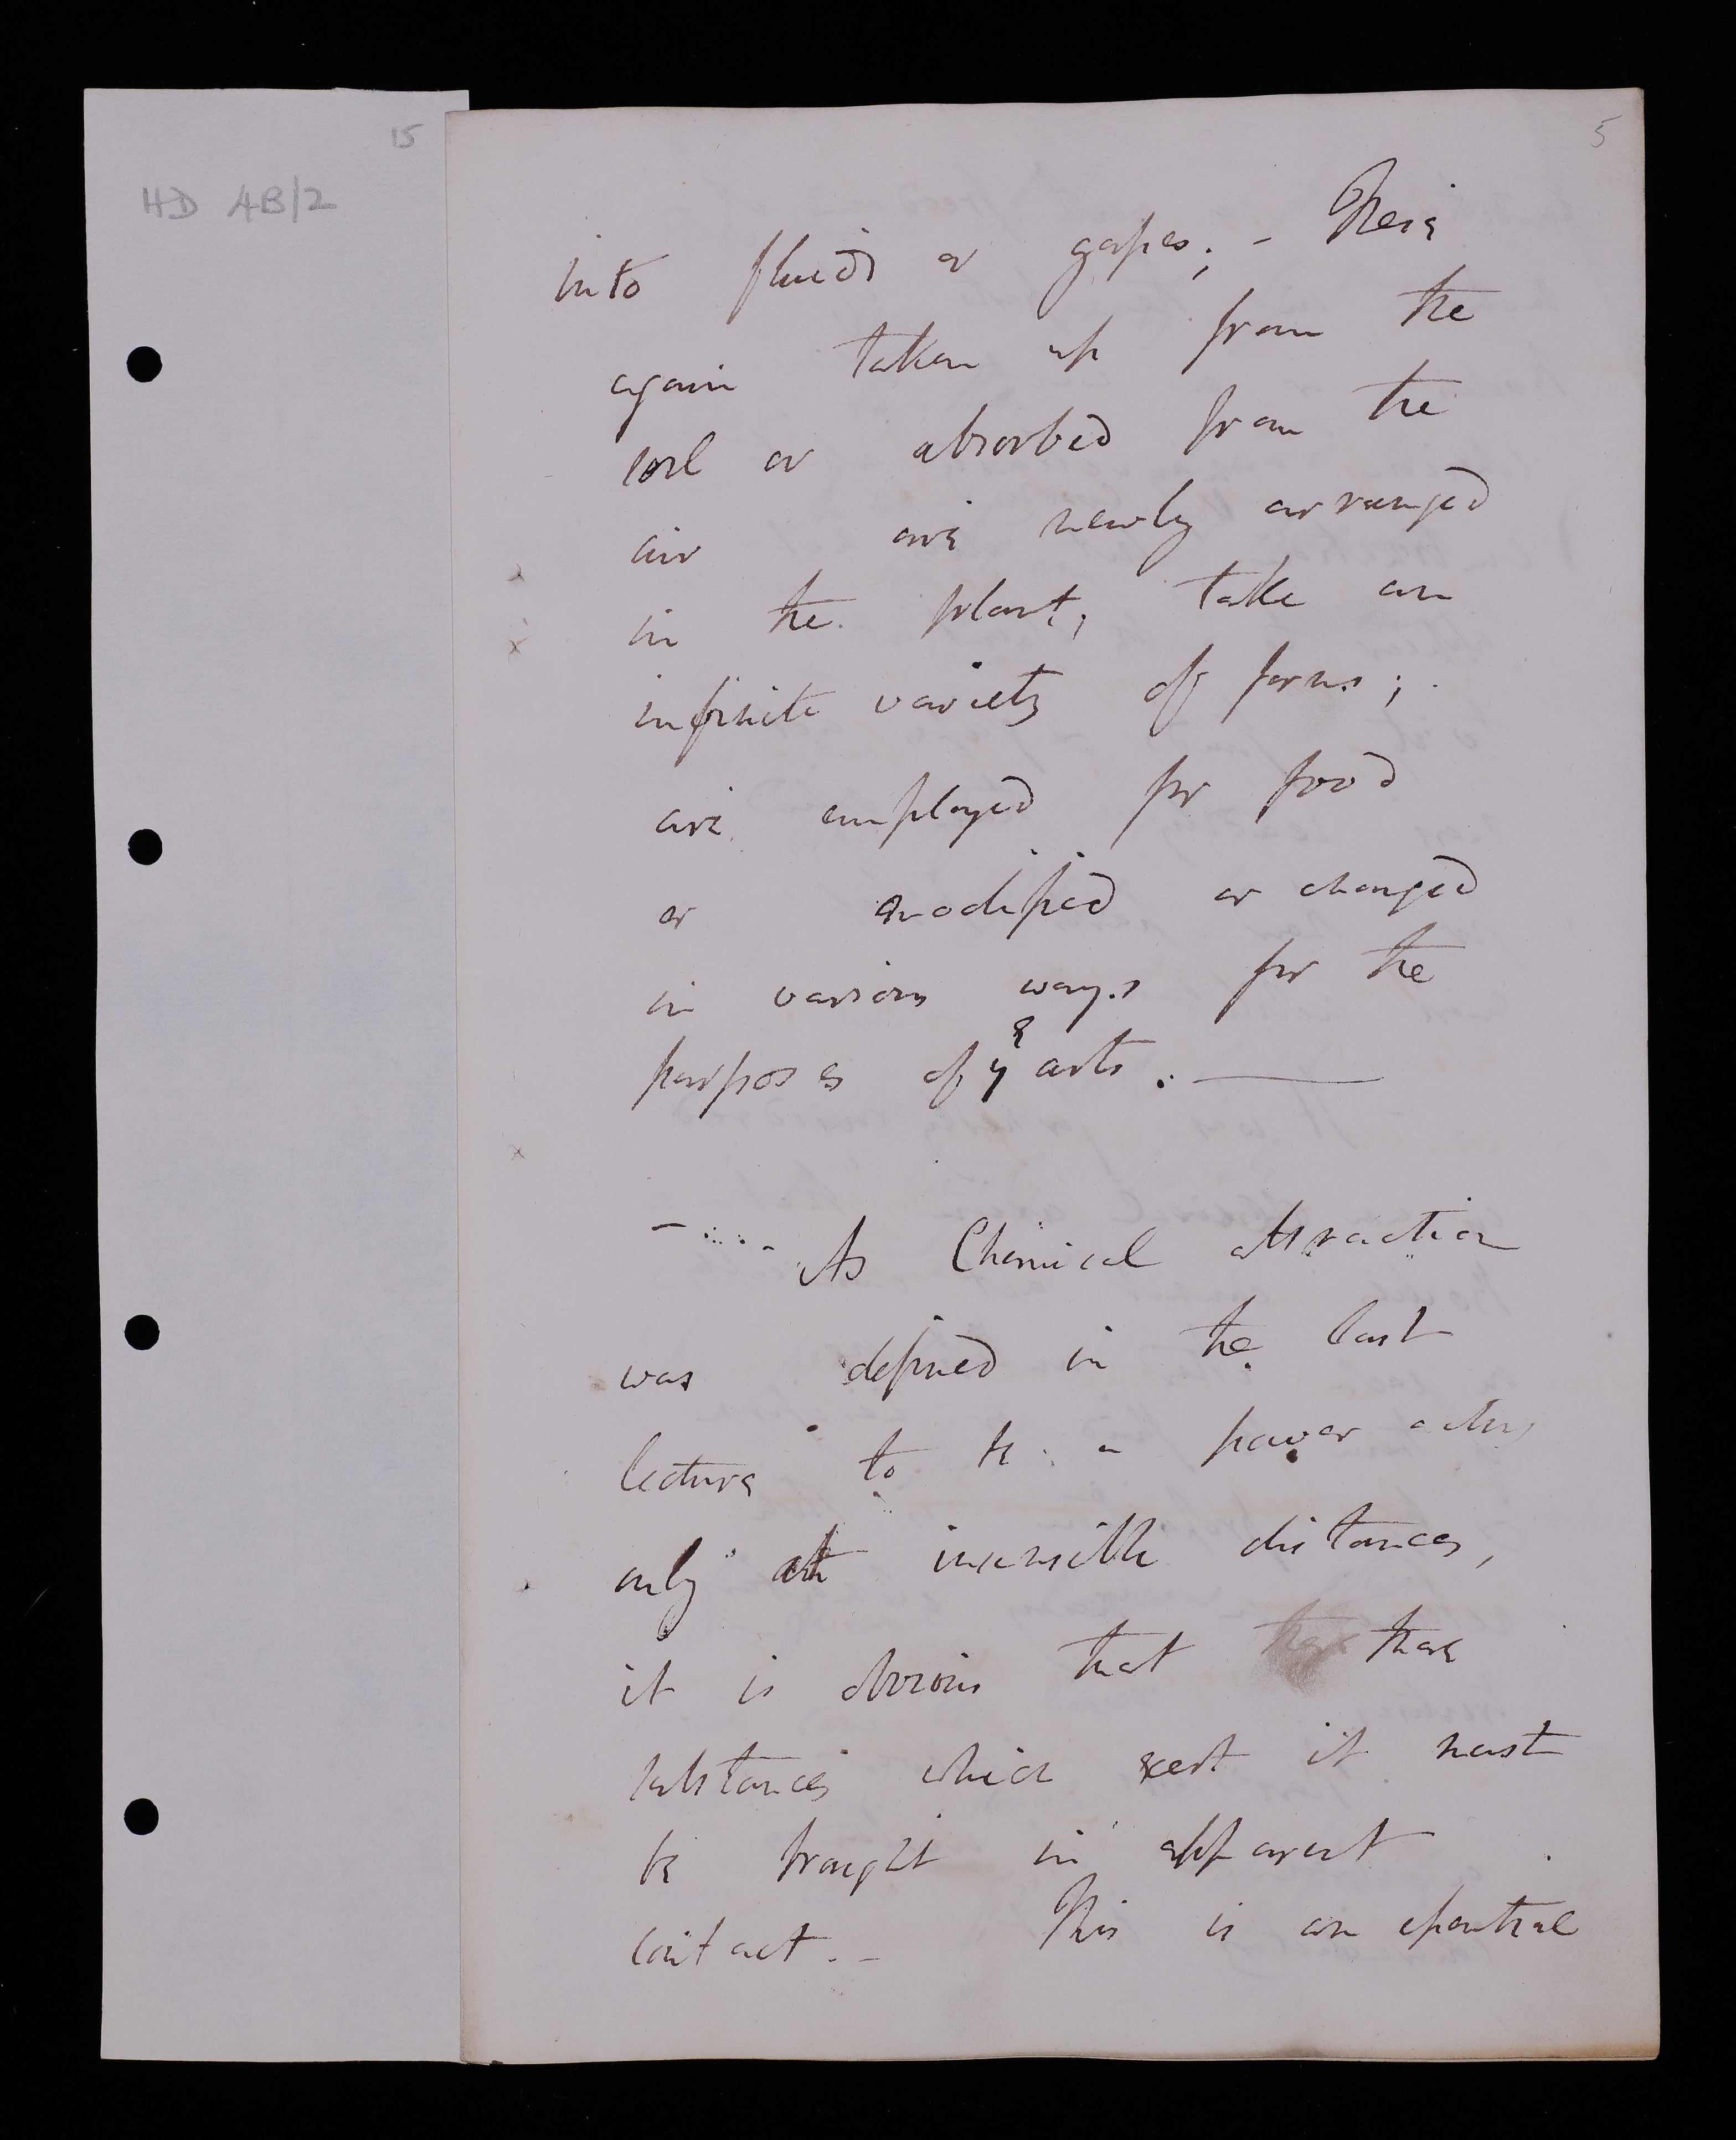 15
HD 4B/2
5
into fluids or gasses; - These
again taken up from the
soil or absorbed from the
air are newly arranged
in the plant; take an
infinite variety of forms;
are employed for food
or modified or changed
in various ways for the
purposes of ye arts. —
- As Chemical attraction
was defined in the last
lecture to be a power acting
only at insensible distances,
it is obvious that these
substances which exert it must
be brought in apparent
contact. - This is an essential